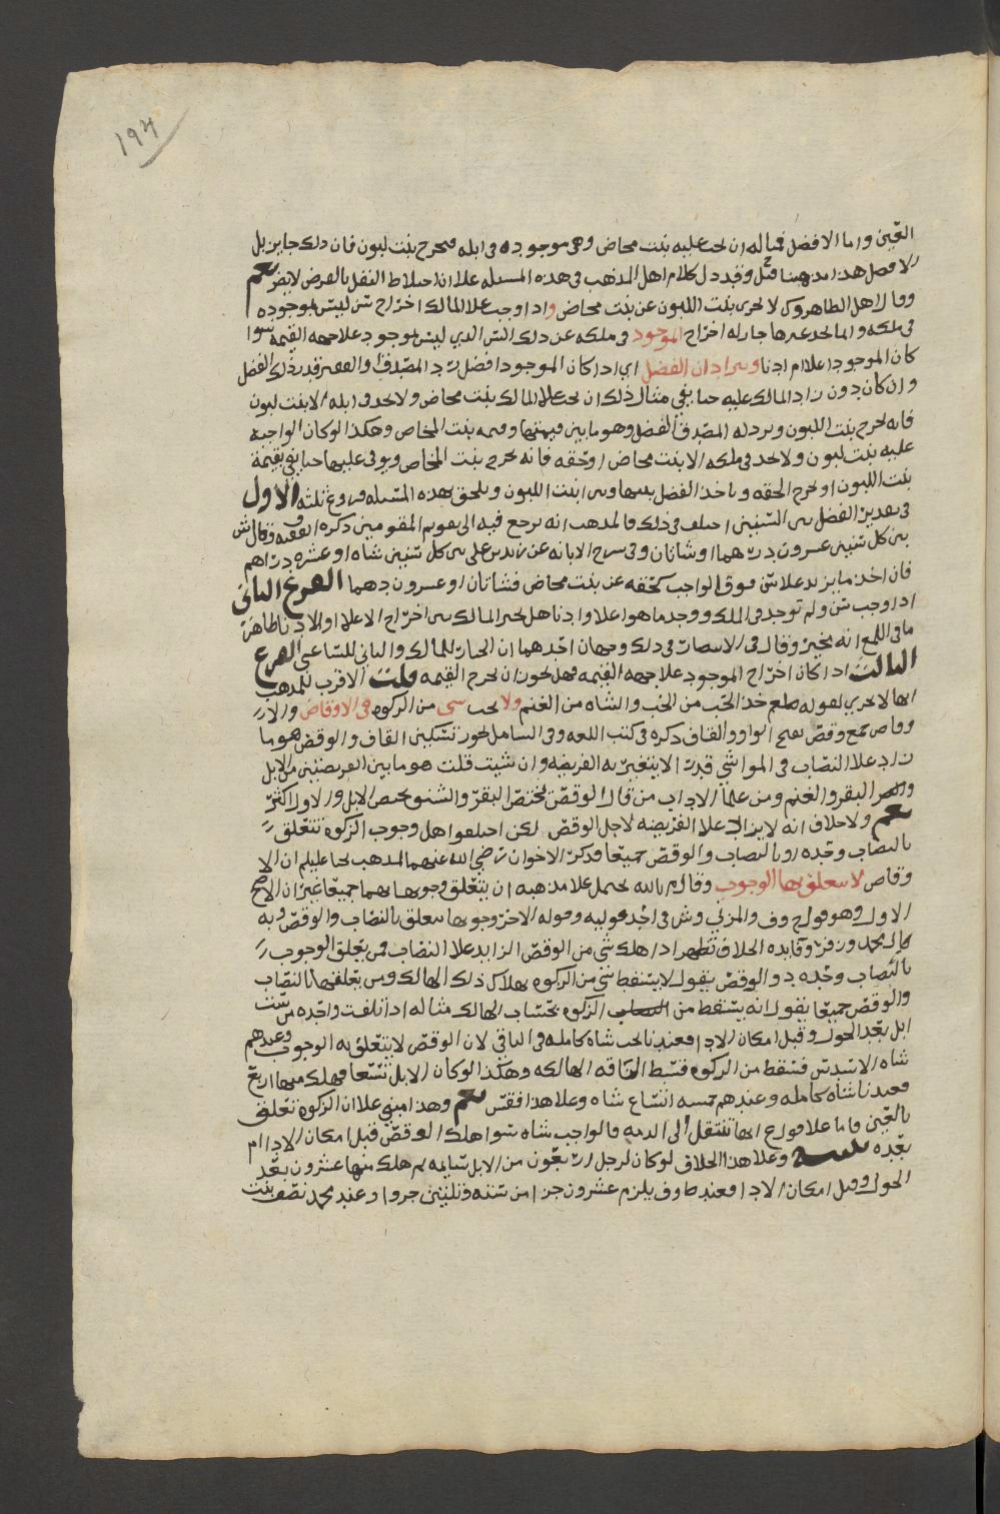 ١٩٣
العين واما الافضل فمثاله ان تجب عليه بنت مخاض وهي موجوده في ابله فيخرج بنت لبون فان ذلك جايز بل
الافضل هذا مذهبنا قيل وقد دل كلام اهل المذهب في هذه المسله علا ان اختلاط النفل بالفرض لايضر نعم
وقال اهل الظاهر وك لا تجزي بنت اللبون عن بنت مخاض واذا وجب علا المالك اخراج سن ليس بموجوده
في ملكه وانما يجد غيرها جاز له اخراج الموجود في ملكه عن ذلك السن الذي ليس بموجود علا جهه القيمه سوا
كان الموجود اعلا ام ادنا ويترادان الفضل اي اذا كان الموجود افضل رد المصدق او الفقير قدر ذلك الفضل
وان كان دون زاد المالك عليه حتا يفي مثال ذلك ان تجب علا المالك بنت مخاض ولا يجد في ابله الا بنت لبون
فانه يخرج بنت اللبون ويرد له المصدق الفضل وهو ما بين قيمتها وقيمه بنت المخاض وهكذا لو كان الواجبه
عليه بنت لبون ولا يجد في ملكه الا بنت مخاض او حقه فانه يخرج بنت المخاض ويوفي عليها حتا يفي بقيمة
بنت اللبون او يخرج الحقه وياخذ الفضل بينها وبين ابنت اللبون ويلحق بهذه المسله فروع ثلثه الاول
في تقدير الفضل بين السنين اختلف في ذلك فالمذهب انه يرجع فيه الى تقويم المقومين ذكره الفقيه ف وقال ش
بين كل سنين عسرون درهما او شاتان وفي سرح الابانه عن زيد بن علي بين كل سنين شاه او عشره دراهم
فان اخذ ما يزيد علا سن فوق الواجب كحقه عن بنت مخاض فشاتان او عسرون درهما الفرع الثاني
اذا وجب سن ولم توجد في الملك ووجد ما هو اعلا وادنا هل يخير المالك بين اخراج الاعلا او الادنا ظاهر
ما في اللمع انه يخير وقال في الانتصار في ذلك وجهان احدهما ان الخيار للمالك والثاني للساعي الفرع
الثالث اذا كان اخراج الموجود علا جهه القيمه فهل يجوز ان يخرج القيمه قلت الاقرب للمذهب
انها لا تجزي لقوله صلعم خذ الحب من الحب والشاه من الغنم ولا يجب شي من الزكوه في الاوقاص والاو
وقاص جمع وقص بفتح الواو والقاف ذكره في كتب اللغه وفي الشامل يجوز تسكين القاف والوقص هو ما
زاد علا النصاب في المواشي قدرا لا يتغير به الفريضه وان شيت قلت هو ما بين الفريضتين من الابل
والبقر والغنم ومن علما الاداب من قال الوقص يختص البقر والشنق يختص الابل والاول اكثر
نعم ولا خلاف انه لا يزاد علا الفريضه لاجل الوقص لكن اختلفوا هل وجوب الزكوه تتعلق
بالنصاب وحده او بالنصاب والوقص جميعا فذكر الاخوان رضي الله عنهما للمذهب يحيا عليلم ان الا
وقاص لا يتعلق بها الوجوب وقال م بالله يحتمل علا مذهبه ان يتعلق وجوبها بهما جميعا غير ان الاصح
الاول وهو قول ح وف والمزني وش في احد قوليه وقوله الاخر وجوبها يتعلق بالنصاب والوقص وبه
قال محمد وزفر وفايده الخلاف تظهر اذا هلك شي من الوقص الزايد علا النصاب فمن يعلق الوجوب
بالنصاب وحده دون الوقص يقول لا يسقط شي من الزكوه بهلاك ذلك الهالك ومن يعلقها بالنصاب
والوقص جميعا يقول انه يسقط من الزكوه بحساب الهالك مثاله اذا تلفت واحده من ست
ابل بعد الحول وقبل امكان الادا فعندنا يجب شاه كامله في الباقي لان الوقص لا يتعلق به الوجوب وعندهم
شاه الا سدس فسقط من الزكوه قسط الناقه الهالكه وهكذا لو كان الابل تسعا فهلك منها اربع
فعندنا شاه كامله وعندهم خمسه اتساع شاه وعلا هذا فقس نعم وهذا مبني علا ان الزكوه تتعلق
بالعين فاما علا قول ع انها تنتقل الى الذمه فالواجب شاه سوا هلك الوقص قبل امكان الادا ام
بعده تنبيه وعلا هذا الخلاف لو كان لرجل اربعون من الابل سايمه ثم هلك منها عشرون بعد
الحول وقبل امكان الادا فعند ط وف يلزم عشرون جزا من سته وثلثين جزوا وعند محمد نصف بنت